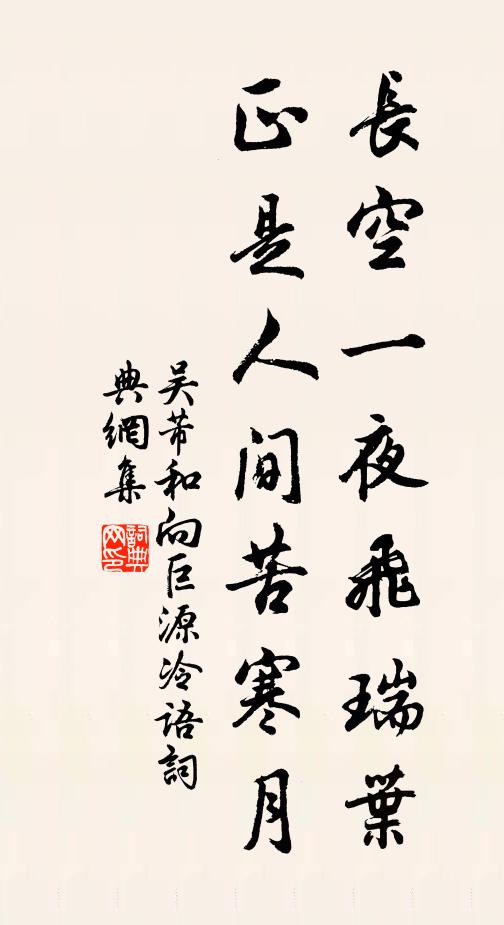 長空一夜飛瑞葉
正是人間苦寒月
吴芾和向巨源冷語詞
典網集
詞典網印